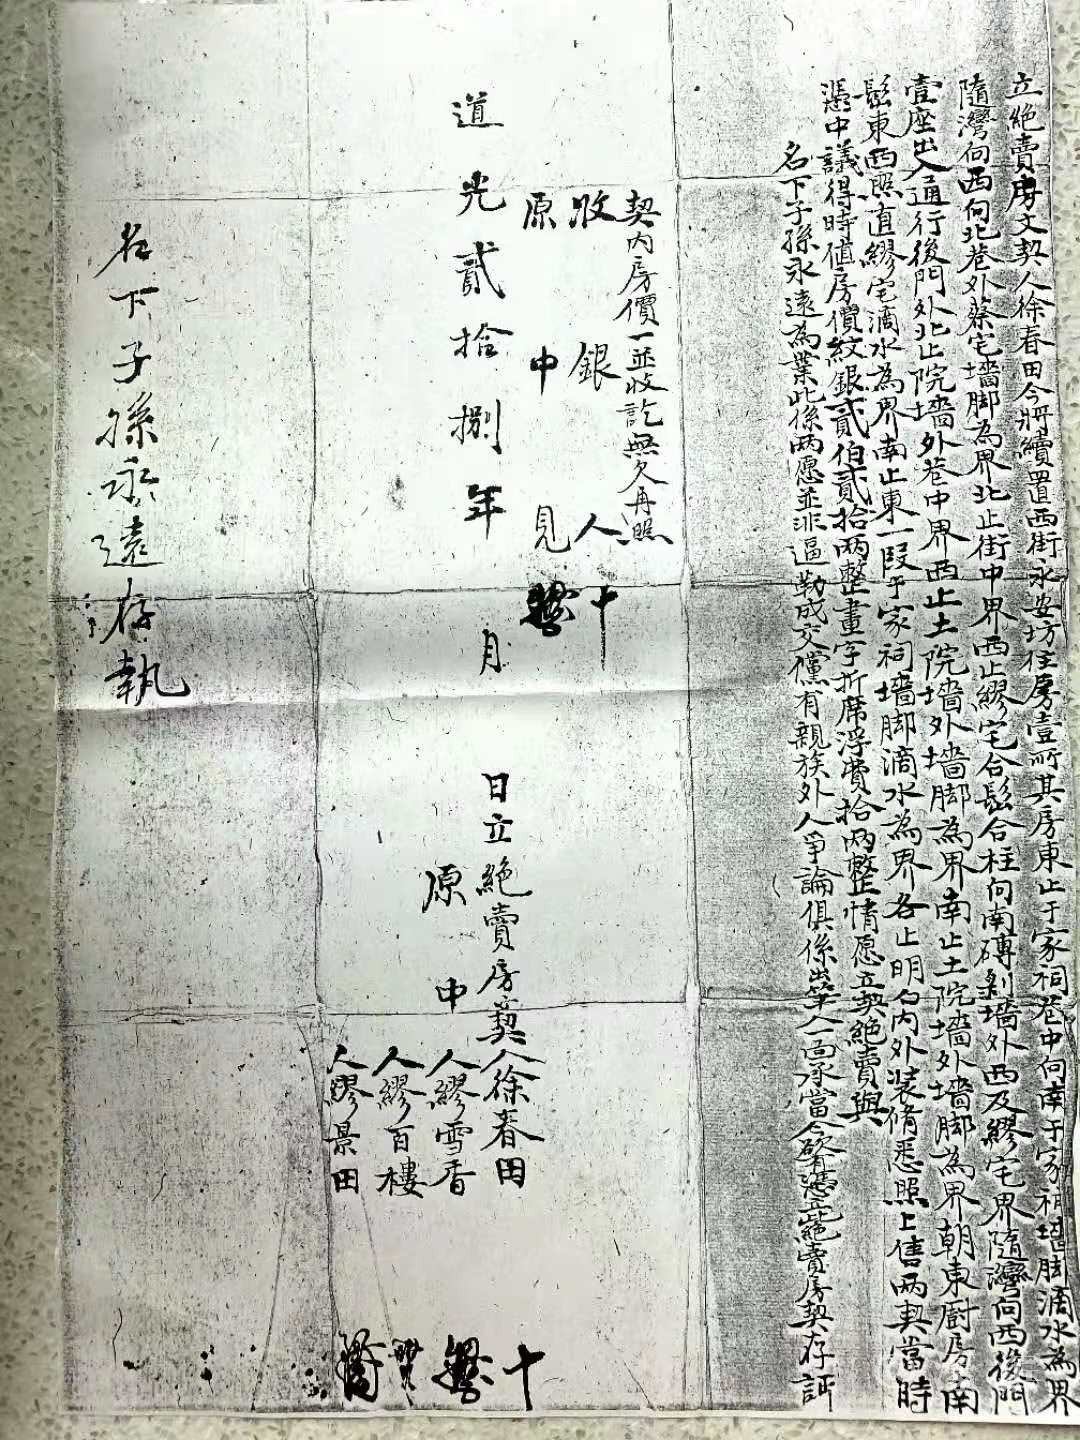 立絶賣房文契人徐春田今將續置西街永安坊住房壹所其房東止于家祠巷中向南于家祠墻脚滴水為界
隨灣向西向北巷外蔡宅墻脚為界北止街中界西止繆宅合髢合柱向南磚剝墻外西及繆宅界隨灣向西後門
壹座出入通行後門外北止院墻外巷中界西止土院墻外墻脚為界南止土院墻外墻脚為界朝東厨房南
髢東西照直繆宅滴水為界南止東一段于家祠墻脚滴水為界各止明白内外裝脩悉照上售兩契當時
憑中議得時值房價紋銀貳伯貳拾兩整畫字折席浮費拾兩整情愿立契絶賣與
名下子孫永遠為業此係兩愿並非逼勒成交儻有親族外人爭論俱係出筆人一面承當今欲有憑立此絶賣房契存証
契内房價一並收訖無欠再照
收銀人 十
原中見
道光貳拾捌年 月 日立絶賣房契人徐春田 十
原中人繆雪香
人繆百樓
人繆景田
名下子孫永遠存執